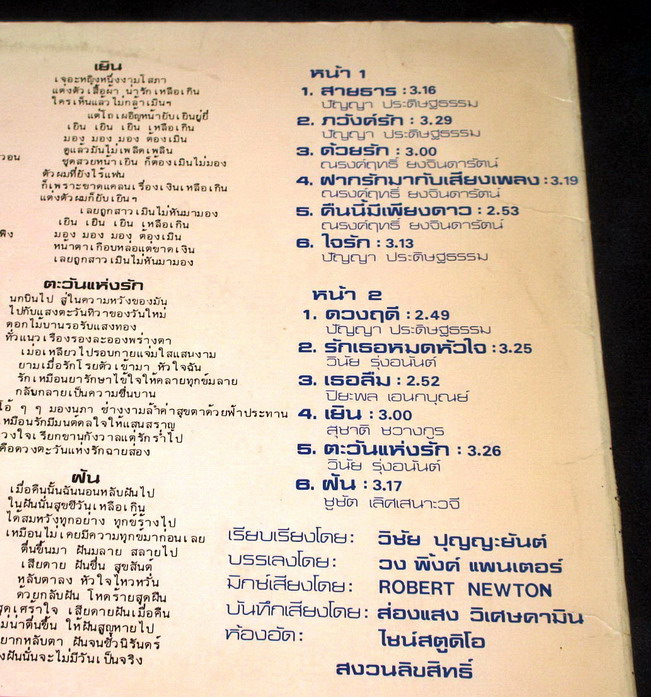 เยิน
เจอะหญิงหนึ่งงามโสภา
แต่งตัวเสื้อผ้า น่ารักเหลือเกิน
ใครเห็นแล้วไม่กล้าเมินๆ
เยิน เยิน เยิน เหลือเกิน
มอง มอง มอง ต้องเมิน
ดูแล้วมันไม่เพลิดเพลิน
ชุดสวยหน้าเยิน ก็ต้องเมินไม่มอง
ตัวผมที่ยังไร้แฟน
ก็เพราะขาดแคลนเรื่องเงินเหลือเกิน
แต่งตัวผมก็ยับเยินๆ
เลยถูกสาวเมินไม่หันมามอง
เยิน เยิน เยิน เหลือเกิน
มอง มอง มอง ต้องเมิน
หน้าตาเกือบหล่อแต่ขาดเงิน
เลยถูกสาวเมินไม่หันมามอง
ตะวันแห่งรัก
นกบินไป สู่ในความหวังของมัน
ไปกับแสงตะวันทิวาของวันใหม่
ดอกไม้บานรอรับแสงทอง
ทั่วแนวเรืองรองละอองพร่างตา
เมื่อเหลียวไปรอบกายแจ่มใสแสนงาม
ยามเมื่อรักโรยตัวเข้ามา หัวใจฉัน
รักเหมือนยารักษาไข้ใจให้คลายทุกข์มลาย
กลับกลายเป็นความชื่นบาน
โอ้ ๆ ๆ มองนภา ช่างงามล้ำค่าสุขตาด้วยฟ้าประทาน
เหมือนรักมีมนต์ดลใจให้แสนสราญ
คือดวงตะวันแห่งรักฉายสอง
ฝัน
เมื่อคืนนั้นฉันนอนหลับฝันไป
ในฝันนั่นสุขชีวันเหลือเกิน
ได้สมหวังทุกอย่าง ทุกข์ร้างไป
เหมือนไม่เคยมีความทุกข์มาก่อนเลย
ตื่นขึ้นมา ฝันมลาย สลายไป
เสียดาย ฝันชื่น สุขสันต์
หลับตาลง หัวใจไหวหวั่น
ด้วยกลับฝัน โหดร้ายสุดฝืน
สุดเศร้าใจ เสียดายฝันเมื่อคืน
ไม่น่าตื่นขึ้น ให้ฝันสูญหายไป
อยากหลับตา ฝันจนชั่วนิรันดร์
ฝันนั่นจะไม่มีวันเป็นจริง
หน้า 1
1. สายธาร : 3.16
ปัญญา ประดิษฐธรรม
2. ภวังค์รัก : 3.29
ปัญญา ประดิษฐธรรม
3. ด้วยรัก : 3.00
ณรงค์ฤทธิ์ ยงจินดารัตน์
4. ฝากรักมากับเสียงเพลง : 3.19
ณรงค์ฤทธิ์ ยงจินดารัตน์
5. คืนนี้มีเพียงดาว : 2.53
ณรงค์ฤทธิ์ ยงจินดารัตน์
6. ใจรัก : 3.13
ปัญญา ประดิษฐธรรม
หน้า 2
1. ดวงฤดี : 2.49
ปัญญา ประดิษฐธรรม
2. รักเธอหมดหัวใจ : 3.25
วินัย รุ่งอนันต์
3. เธอลืม : 2.52
ปิยะพล เอนกบุณย์
4. เยิน : 3.00
สุชาติ ชวางกูร
5. ตะวันแห่งรัก : 3.26
วินัย รุ่งอนันต์
6. ฝัน : 3.17
ชูชัต เลิศเสนาะวจี
เรียบเรียงโดย: วิชัย ปุญญะยันต์
บรรเลงโดย: วง พิ้งค์ แพนเตอร์
มิกซ์เสียงโดย: ROBERT NEWTON
บันทึกเสียงโดย: ส่องแสง วิเศษคามิน
ห้องอัด: ไชน์สตูดิโอ
สงวนลิขสิทธิ์